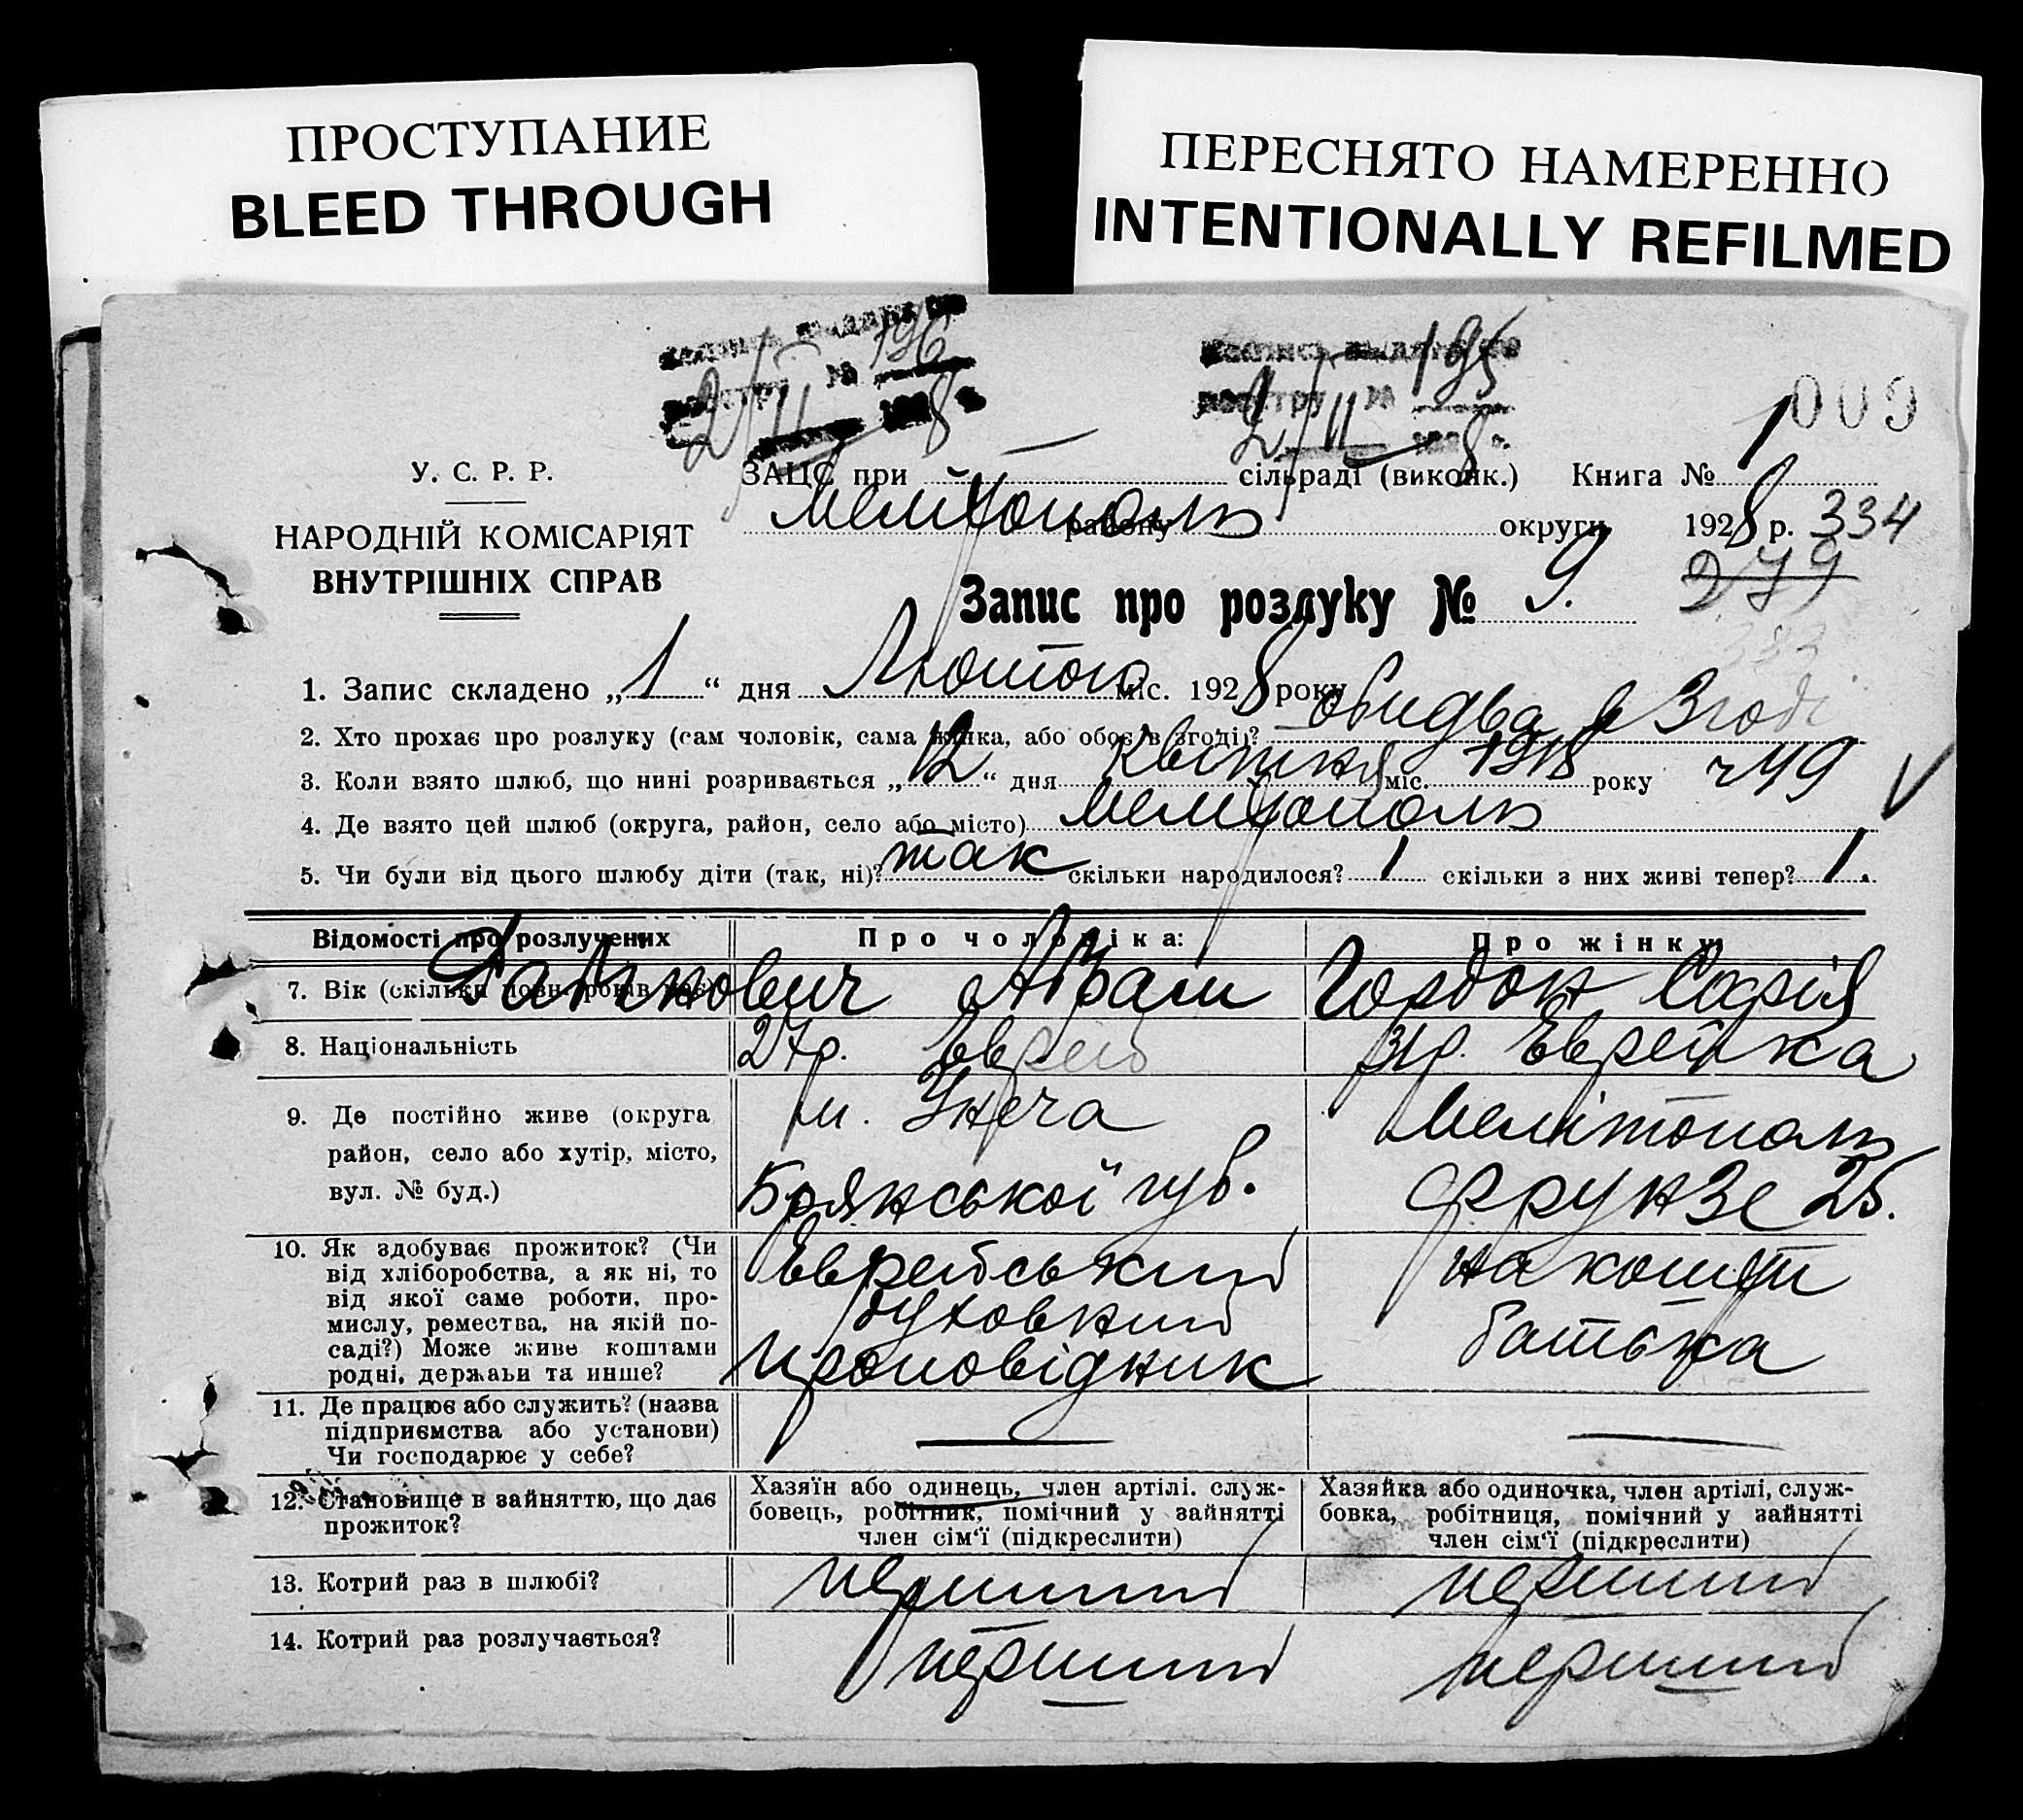 ПРОСТУПАНИЕ
BLEED THROUGH
ПЕРЕСНЯТО НАМЕРЕННО
INTENTIONALLY REFILMED
№ 196
2/II 8
№ 195
2/II 8 р.
1009
У. С. Р. Р.
НАРОДНІЙ КОМІСАРІЯТ
ВНУТРІШНІХ СПРАВ
ЗАЦС при сільраді (викозк.) Книга № 1
Мелітополь району округи 1928 р. 334
279
Запис про розлуку № 9.
1. Запис складено „ 1 “ дня Лютого міс. 1928 року
2. Хто прохає про розлуку (сам чоловік, сама жінка, або обоє в згоді)? обидва в Згоді
3. Коли взято шлюб, що нині розривається „ 12 “ дня Квітня міс. року ч 49
4. Де взято цей шлюб (округа, район, село або місто) Мелітополь
5. Чи були від цього шлюбу діти (так, ні)? так скільки народилося? 1 скільки з них живі тепер? 1.
Відомості про розлучених
Про чоловіка:
Про жінку:
7. Вік (скільки повн. років має)
Абрам
Гордон Сарія
8. Національність
27р. Еврей
31р. Еврейка
9. Де постійно живе (округа район, село або хутір, місто, вул. № буд.)
м. Унеча
Брянської губ.
Мелітополь
Фрунзе 25.
10. Як здобуває прожиток? (Чи
від хліборобства, а як ні, то
від якої саме роботи, про-
мислу, ремества, на якій по-
саді?) Може живе коштами
родні, держави та инше?
Еврейський
духовний
проповідник
на кошти
батька
11. Де працює або служить? (назва
підприємства або установи)
Чи господарює у себе?
12. Становище в зайняттю, що дає
прожиток?
Хазяїн або одинець, член артілі. служ-
бовець, робітник, помічний у зайнятті
член сім‘ї (підкреслити)
Хазяйка або одиночка, член артілі, служ-
бовка, робітниця, помічний у зайнятті
член сім‘ї (підкреслити)
13. Котрий раз в шлюбі?
перший
перший
14. Котрий раз розлучається?
перший
перший